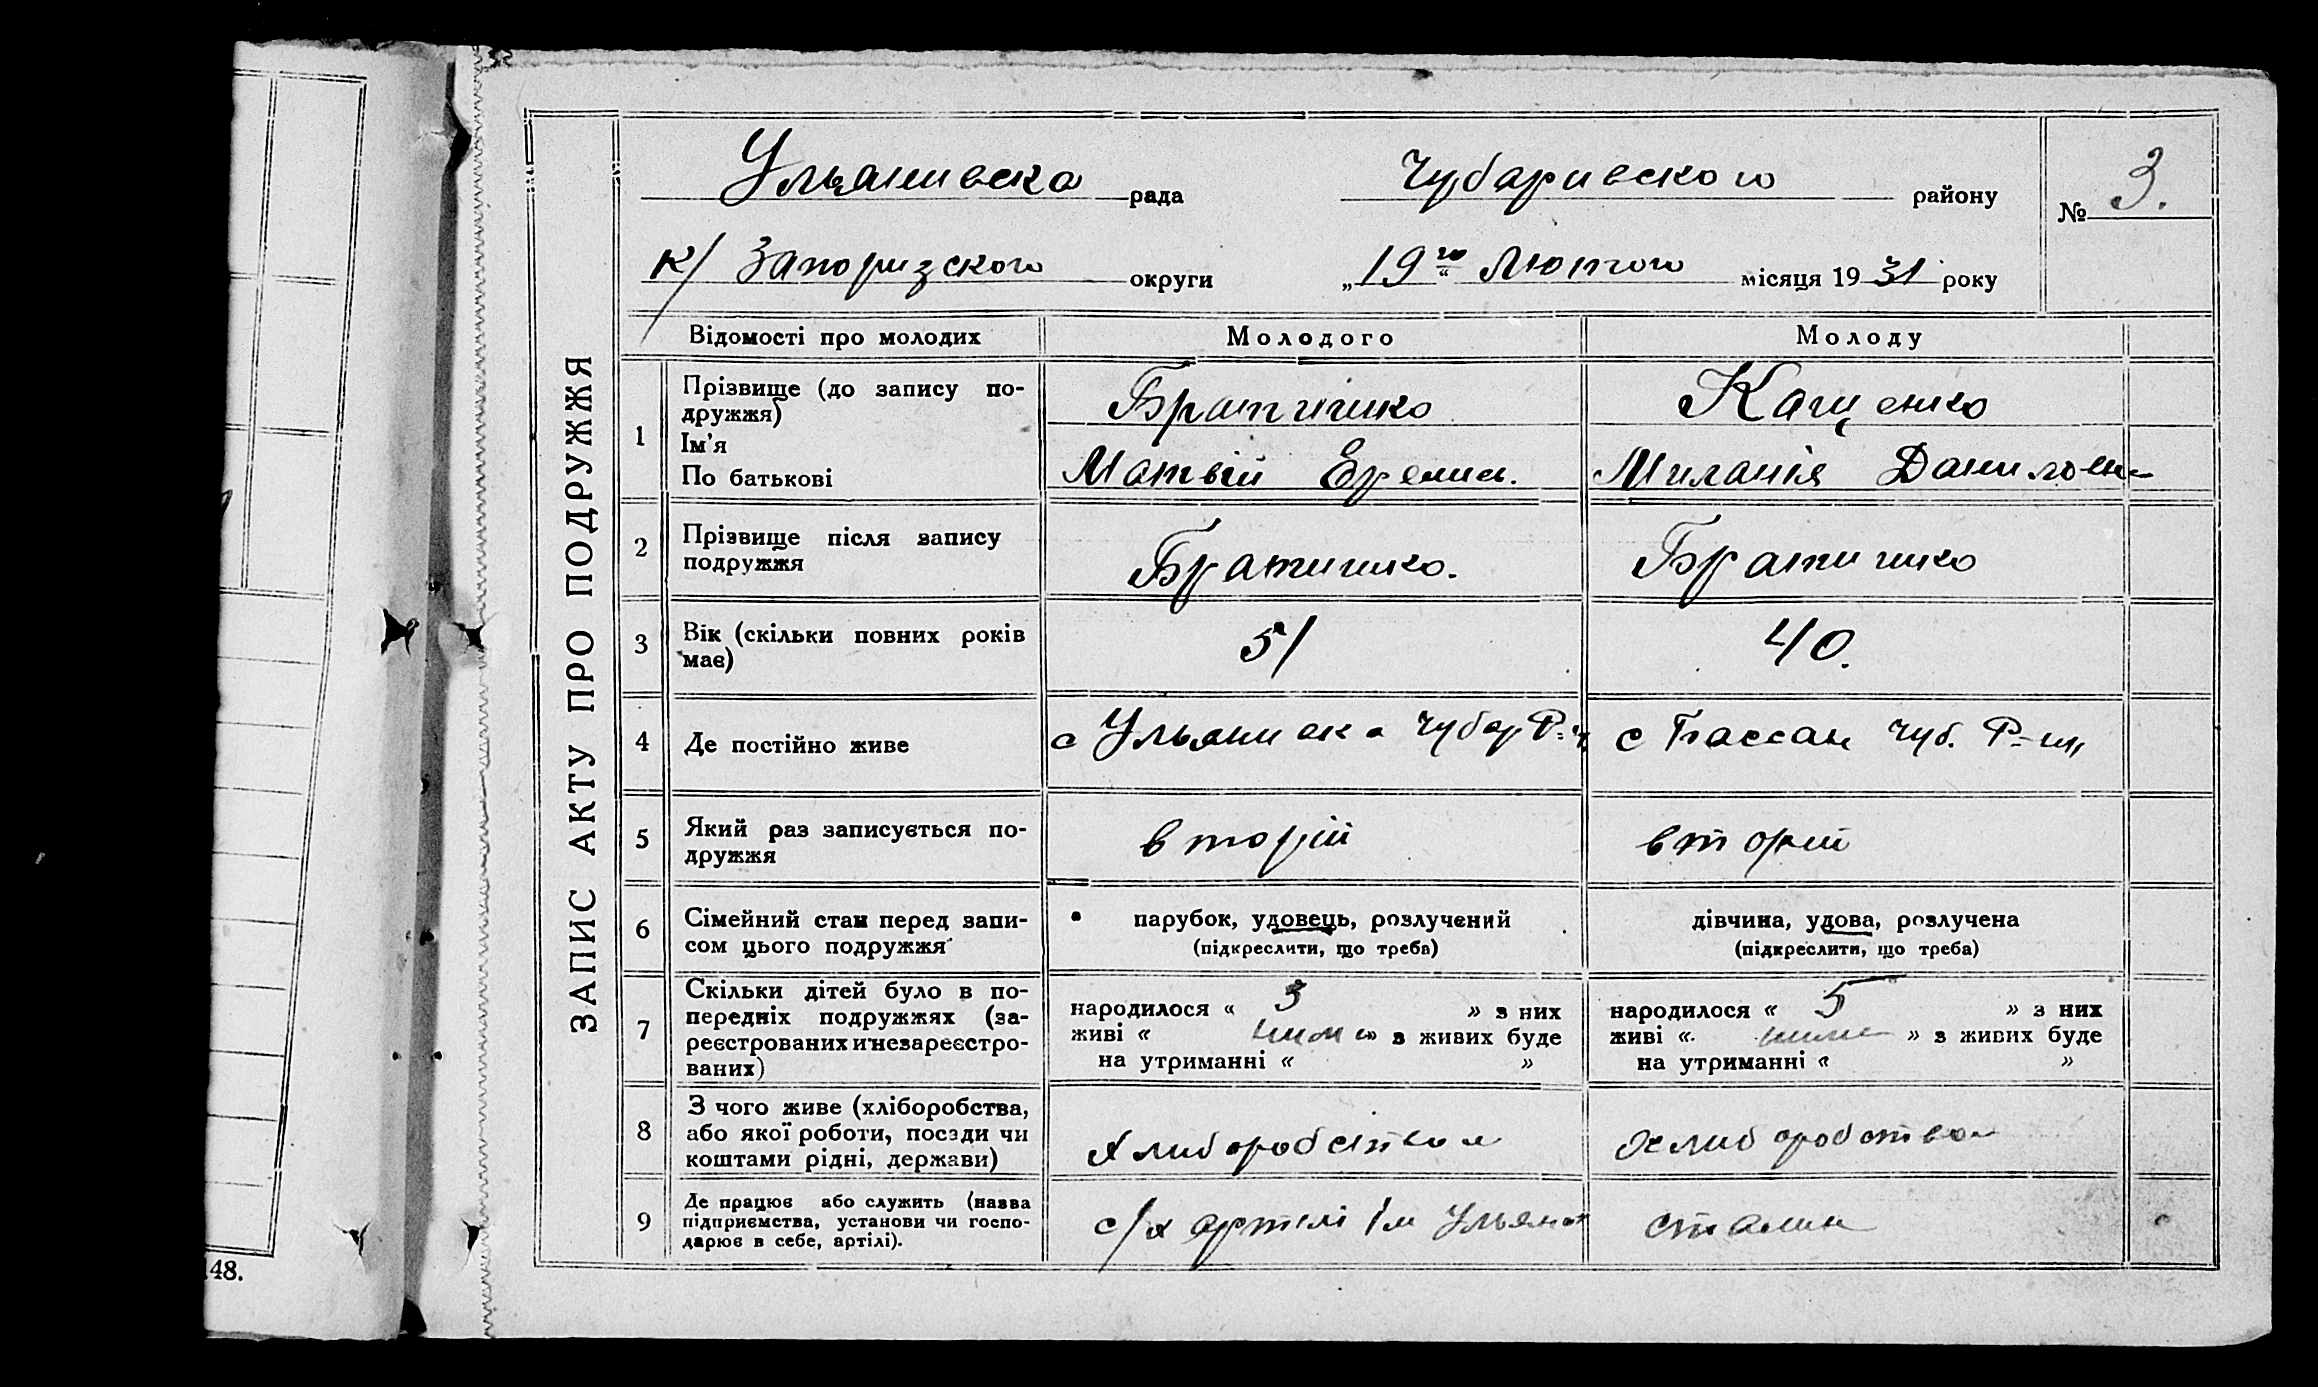 ЗАПИС АКТУ ПРО ПОДРУЖЖЯ
Ульянивска рада Чубаривского району № 3.
к/ Запоризского округи „19го“ Лютого місяця 1931 року
Відомості про молодих Молодого Молоду
1 Прізвище (до запису подружжя) Братишко Кащенко
Ім’я
По батькові Матвій Еремиев. Миланія Данилов
2 Прізвище після запису подружжя Братишко. Братишко
3 Вік (скільки повних років має) 51 40.
4 Де постійно живе с Ульянивка Чубар Р-н с Бассан Чуб. Р-ну
5 Який раз записується подружжя вторій вторий
6 Сімейний стан перед записом цього подружжя парубок, удовець, розлучений дівчина, удова, розлучена
(підкреслити, що треба) (підкреслити, що треба)
7 Скільки дітей було в попередніх подружжях (зареєстрованих и незареєстрованих) народилося « 3 » з них народилося « 5 » з них
живі « » з живих буде живі « » з живих буде
на утриманні « » на утриманні « »
8 З чого живе (хліборобства, або якої роботи, посади чи коштами рідні, держави) Хлиборобством Хлиборобством
9 Де працює або служить (назва підприємства, установи чи господарює в себе, артілі). с/х артілі Ім Ульянов Сталин
148.